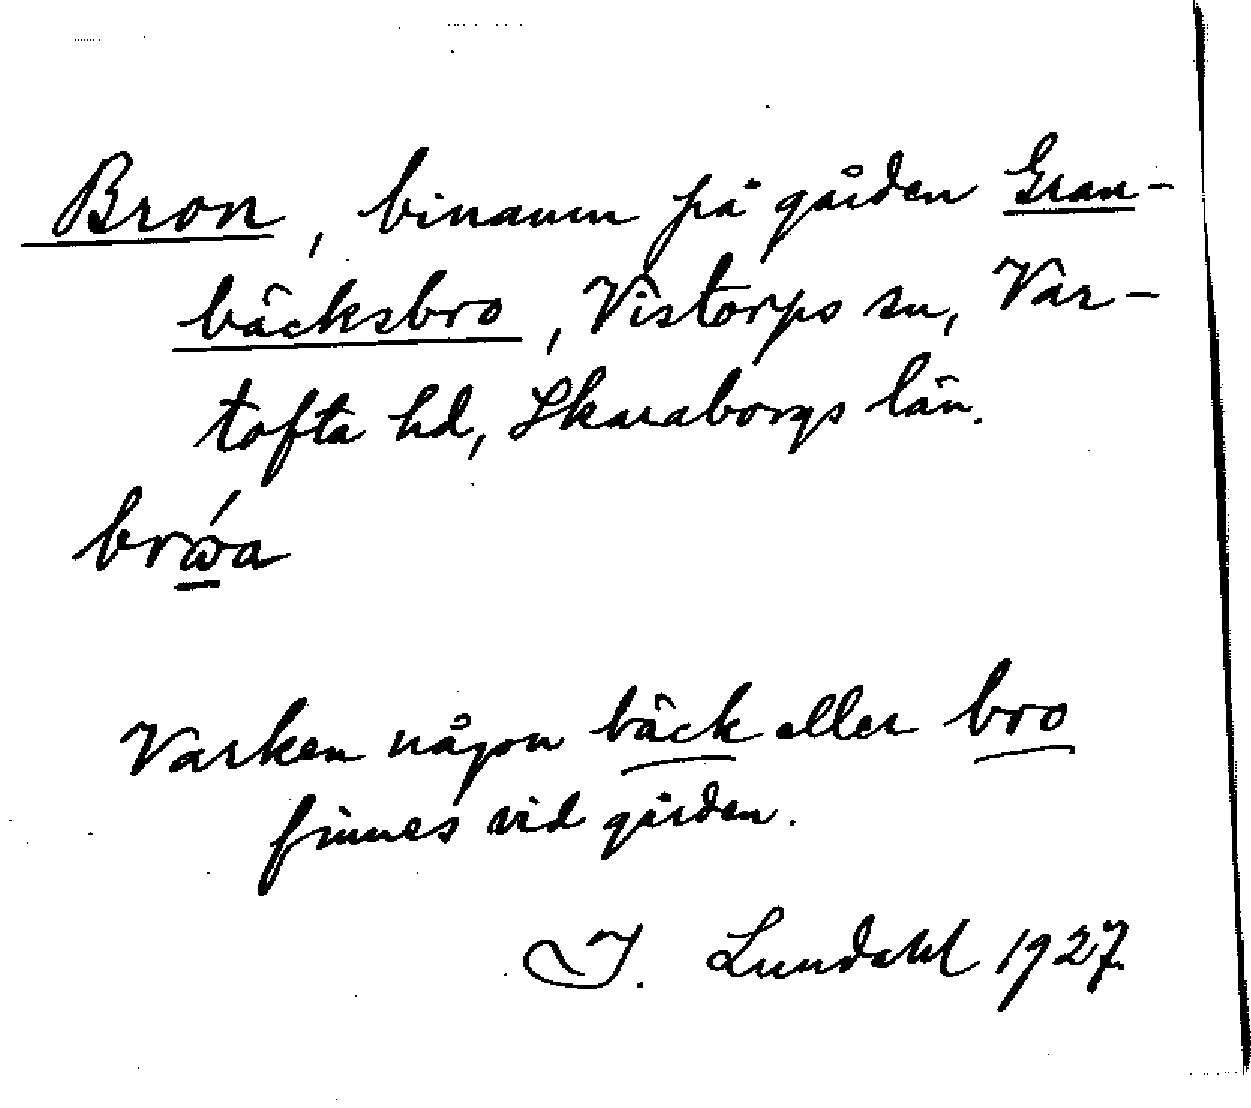 Bron, binamn på gården Gran-
bäcksbro, Vistorps sn, Var-
tofta hd, Skaraborgs län.
Varken någon bäck eller bro
finnes vid gården.
I. Lundahl 1927.